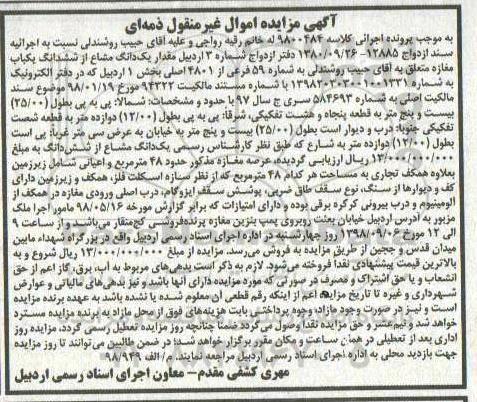 آگهی مزایده اموال غیرمنقول ذمه‌ای
به موجب پرونده اجرائی کلاسه ۹۸۰۰۴۸۴ له خانم رقیه رواجی و علیه آقای حبیب روشندلی نسبت به اجرائیه
سند ازدواج ۱۲۸۸۵- ۱۳۸۰/۰۹/۲۶ دفتر ازدواج شماره ۳ اردبیل مقدار یک‌دانگ مشاع از ششدانگ یکباب
مغازه متعلق به آقای حبیب روشندلی به شماره ۵۹ فرعی از ۴۸۰۱ اصلی بخش ۱ اردبیل که در دفتر الکترونیک
به شماره ۱۳۹۸۲۰۳۰۳۰۰۱۰۰۱۳۳۱ با شماره مستند مالکیت ۹۴۳۲۲ مورخ ۹۸/۰۱/۱۹ موضوع سند
مالکیت اصلی به شماره ۵۸۴۶۹۳ سری ج سال ۹۷ با حدود و مشخصات: شمالا: پی به پی بطول (۲۵/۰۰)
بیست و پنج متر به قطعه پنجاه و هشت تفکیکی، شرقا: پی به پی بطول (۱۲/۰۰) دوازده متر به قطعه شصت
تفکیکی جنوبا: درب و دیوار است بطول (۲۵/۰۰) بیست و پنج متر به خیابان به عرض سی متر غربا: پی است
بطول (۱۲/۰۰) دوازده متر به شارع که طبق نظر کارشناس رسمی یک‌دانگ مشاع از شش‌دانگ به مبلغ
۱۳/۰۰۰/۰۰۰/۰۰۰ ریال ارزیابی گردیده، عرصه مغازه مذکور حدود ۴۸ مترمربع و اعیانی شامل زیرزمین
بعلاوه همکف تجاری به مساحت هر کدام ۴۸ مترمربع که از نظر سازه اسکلت فلز، همکف و زیرزمین دارای
کف و دیوارها از سنگ، نوع سقف طاق ضربی، پوشش سقف ایزوگام، درب اصلی ورودی مغازه در همکف از
الومینیوم و درب بیرونی کرکره برقی بوده و دارای امتیازات که برابر گزارش مورخه ۹۸/۰۵/۱۶ مامور اجرا ملک
مزبور به آدرس اردبیل خیابان بعثت روبروی پمپ بنزین مغازه پرنده‌فروشی کج‌منقار می‌باشد. از ساعت ۹
الی ۱۲ مورخ ۱۳۹۸/۰۹/۰۶ روز چهارشنبه در اداره اجرای اسناد رسمی اردبیل واقع در بزرگراه شهداء مابین
میدان قدس و ججین از طریق مزایده به فروش می‌رسد. مزایده از مبلغ ۱۳/۰۰۰/۰۰۰/۰۰۰ ریال شروع و به
بالاترین قیمت پیشنهادی نقدا فروخته می‌شود. لازم به ذکر است بدهی‌های مربوط به آب، برق، گاز اعم از حق
انشعاب و یا حق اشتراک و مصرف در صورتی که مورد مزایده دارای آنها باشد و نیز بدهی‌های مالیاتی و عوارض
شهرداری و غیره تا تاریخ مزایده اعم از اینکه رقم قطعی آن معلوم شده یا نشده باشد به عهده برنده مزایده
است و نیز در صورت وجود مازاد، وجوه پرداختی بابت هزینه‌های فوق از محل مازاد به برنده مزایده مسترد
خواهد شد و نیم‌عشر و حق مزایده نقدا وصول می‌گردد ضمنا چنانچه روز مزایده تعطیل رسمی گردد، مزایده روز
اداری بعد از تعطیلی در همان ساعت و مکان مقرر برگزار خواهد شد؛ در ضمن طالبین می‌توانند تا روز مزایده
جهت بازدید محلی به اداره اجرای اسناد رسمی اردبیل مراجعه نمایند. م/الف ۹۸/۹۴۹
مهری کشفی مقدم- معاون اجرای اسناد رسمی اردبیل